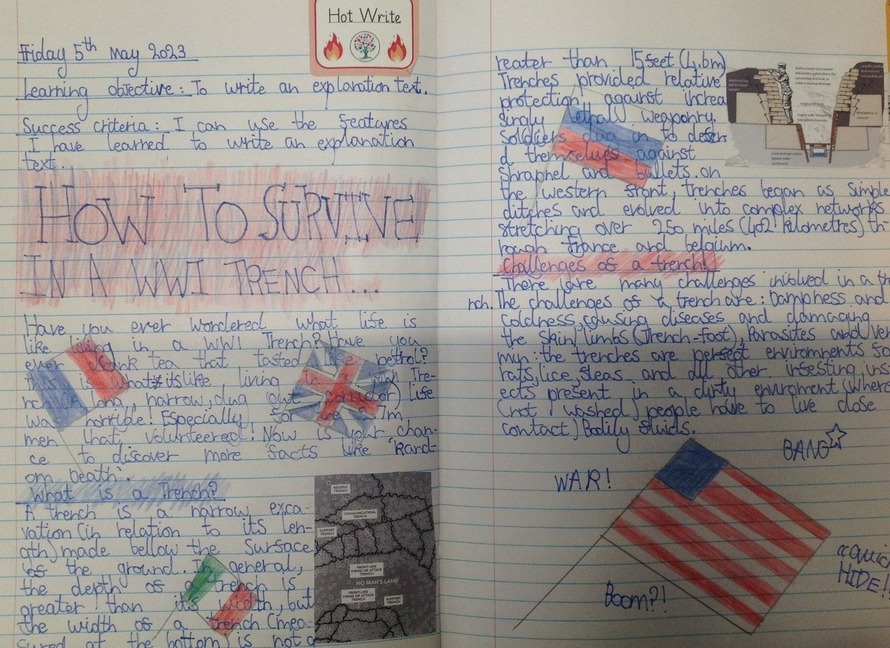 Hot Write
Friday 5th May 2023
Learning objective: To write an explanation text.
Success criteria: I can use the features
I have learned to write an explanation
text.
HOW TO SURVIVE
IN A WWI TRENCH...
Have you ever wondered what life is
like living in a WWI Trench? Have you
ever drank tea that tasted like petrol?
This is what it's like, living in a Tre-
nch. A long, narrow, dug out corridor) life
was horrible! Especially for
men that volunteered! Now is your chan-
ce to discover more facts like 'Rand-
om Death'.
What is a Trench?
A trench is a narrow exca-
vation (in relation to its len-
gth) made bellow the surface
of the ground. In general,
the depth of a trench is
greater than its width, but
the width of a trench (mea-
sured at the bottom) is not g
RESERVE TRENCH
COMMUNICATIONS TRENCH
SUPPORT TRENCH
SUPPORT TRENCH
FRONT LINE FIRING OR ATTACK TRENCH
NO MAN'S LAND
FRONT LINE FIRING OR ATTACK TRENCH
SUPPORT TRENCH
reater than 15feet (4.6m)
Trenches provided relative
protection against increa
singly lethal weaponry.
Soldiers dug in to defen
d themselves against
shraphel and bullets. on
the western front, trenches began as simple
ditches and evolved into complex networks
stretching over 250 miles (402 kilometres) th-
rough france and belgium.
Challenges of a trench!
There are many challenges inivolved in a tre
nch. The challenges of a trench are: Dampness and
coldness, causing diseases and damaging
the skin/limbs (Trench-foot), Parasites and ver
min: the trenches are perfect enviroments for
rats, lice, fleas and all other infesting ins
ects present in a dirty enviroment (where
(not washed) people have to live close
contact) Bodily fluids.
WAR!
BANG
Boom?!
HIDE!!